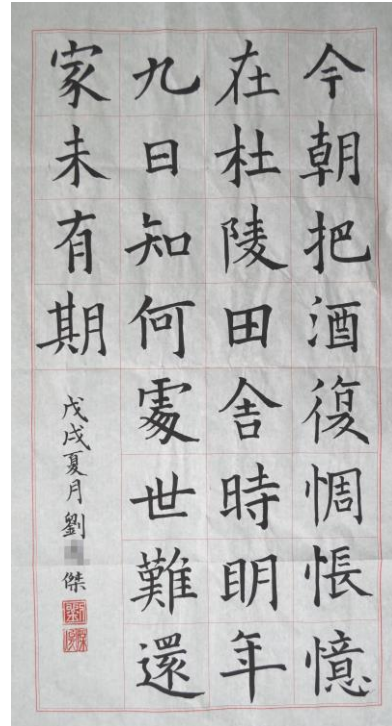 今朝把酒復惆悵憶
在杜陵田舍時明年
九日知何處世難還
家未有期
戊戌夏月劉 傑